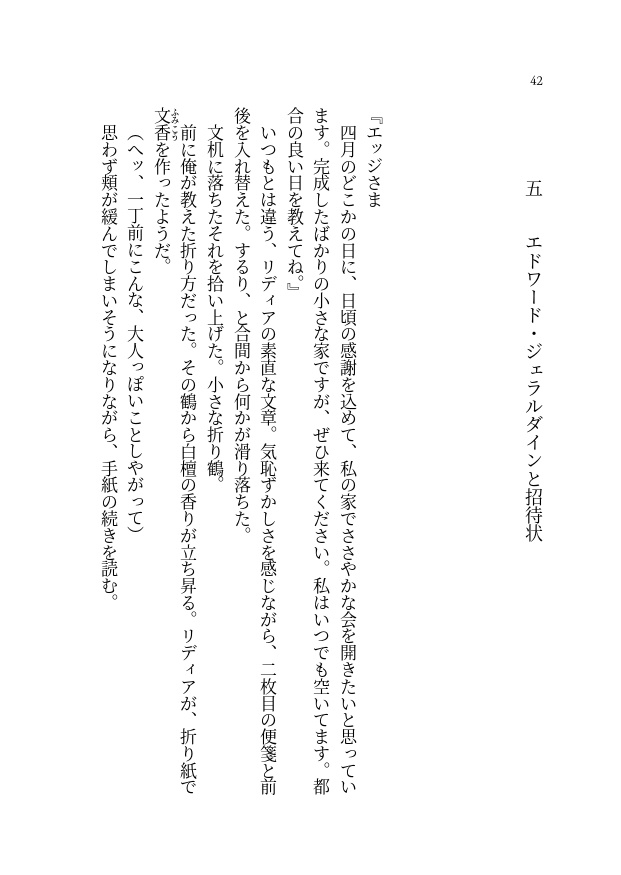 42
五　エドワード・ジェラルダインと招待状
『エッジさま
　四月のどこかの日に、日頃の感謝を込めて、私の家でささやかな会を開きたいと思ってい
ます。完成したばかりの小さな家ですが、ぜひ来てください。私はいつでも空いてます。都
合の良い日を教えてね。』
　いつもとは違う、リディアの素直な文章。気恥ずかしさを感じながら、二枚目の便箋と前
後を入れ替えた。するり、と合間から何かが滑り落ちた。
　文机に落ちたそれを拾い上げた。小さな折り鶴。
　前に俺が教えた折り方だった。その鶴から白檀の香りが立ち昇る。リディアが、折り紙で
文香を作ったようだ。
ふみこう
（ヘッ、一丁前にこんな、大人っぽいことしやがって）
　思わず頬が緩んでしまいそうになりながら、手紙の続きを読む。